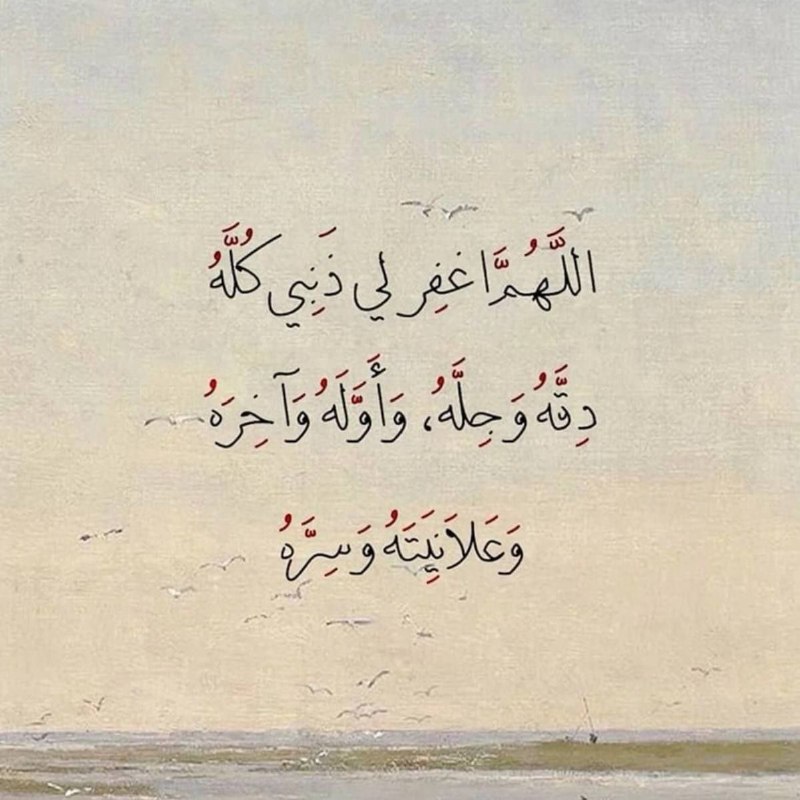 اللَّهُمَّ اغفِر لي ذَنبِي كُلَّهُ
دِقَّهُ وَجِلَّهُ، وَأَوَّلَهُ وَآخِرَهُ
وَعَلاَنِيَتَهُ وَسِرَّهُ